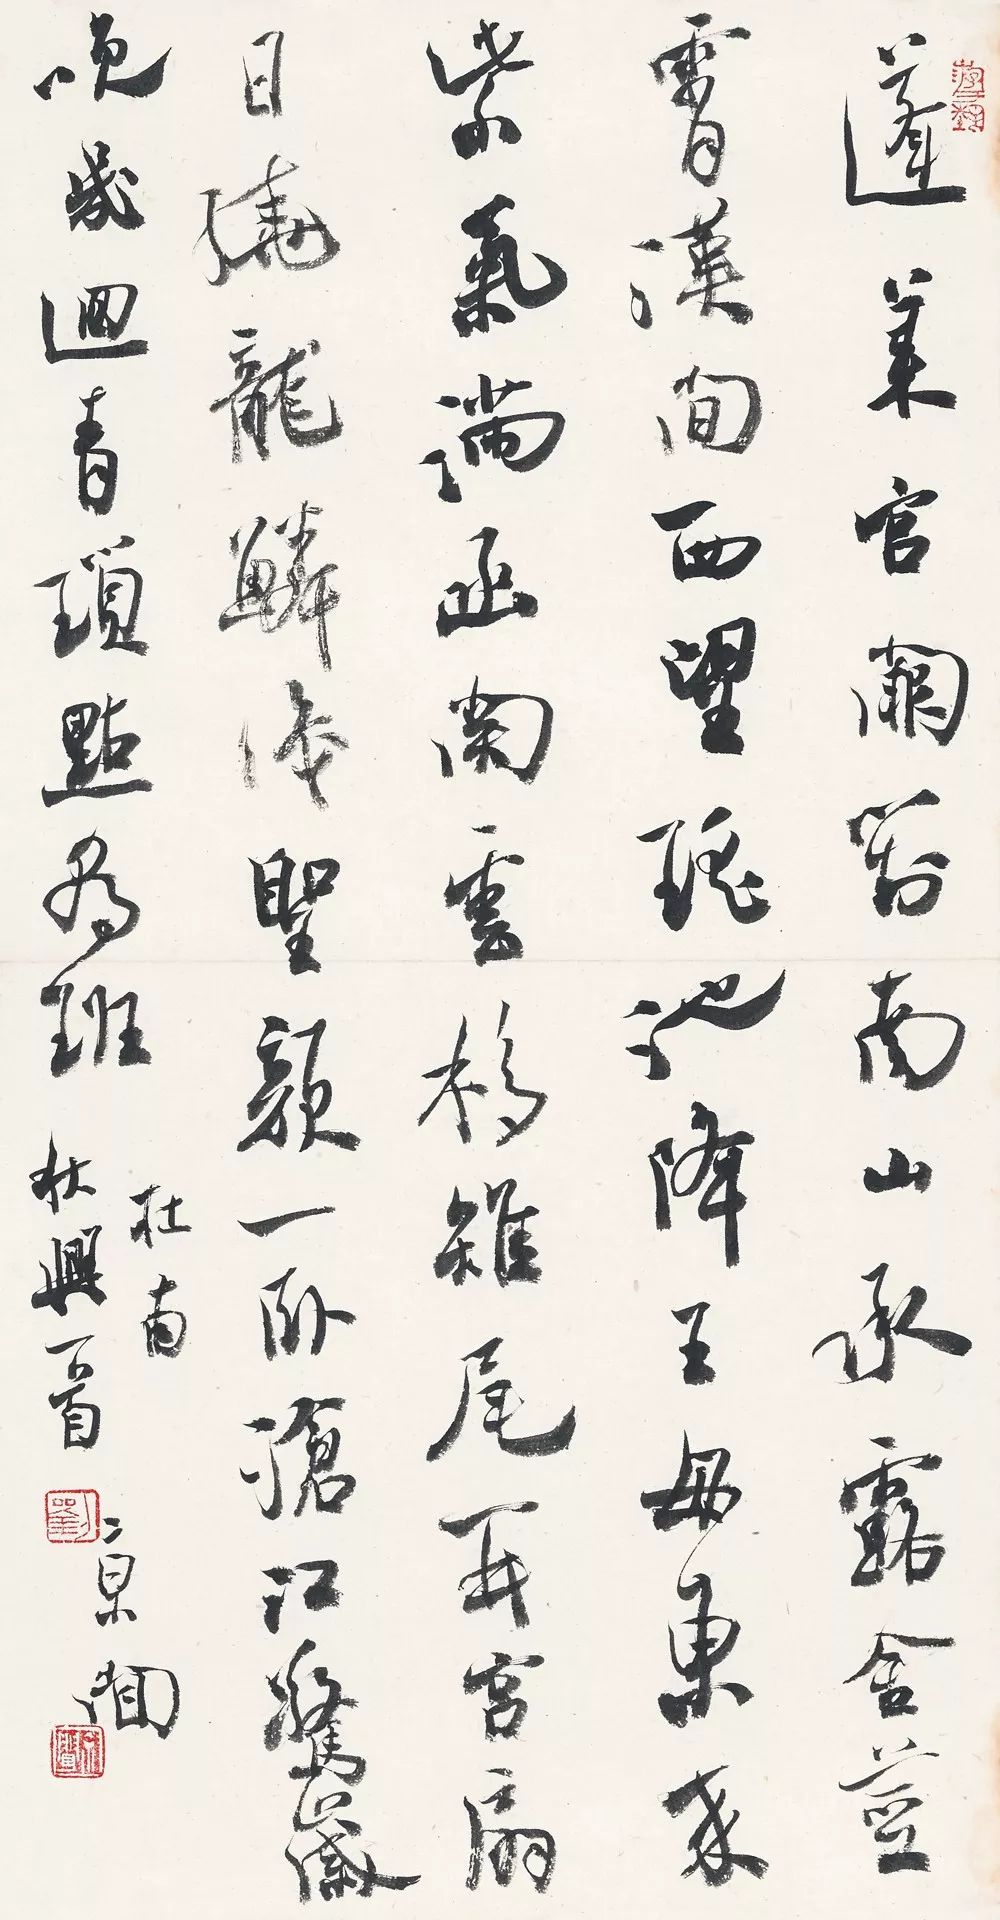 蓬萊宮闕對南山承露金莖
霄漢間西望瑤池降王母東來
紫氣滿函關雲移雉尾開宮扇
日繞龍鱗識聖顏一卧滄江驚歲
晚幾迴青瑣點朝班
杜甫
秋興一首
京聞
劉